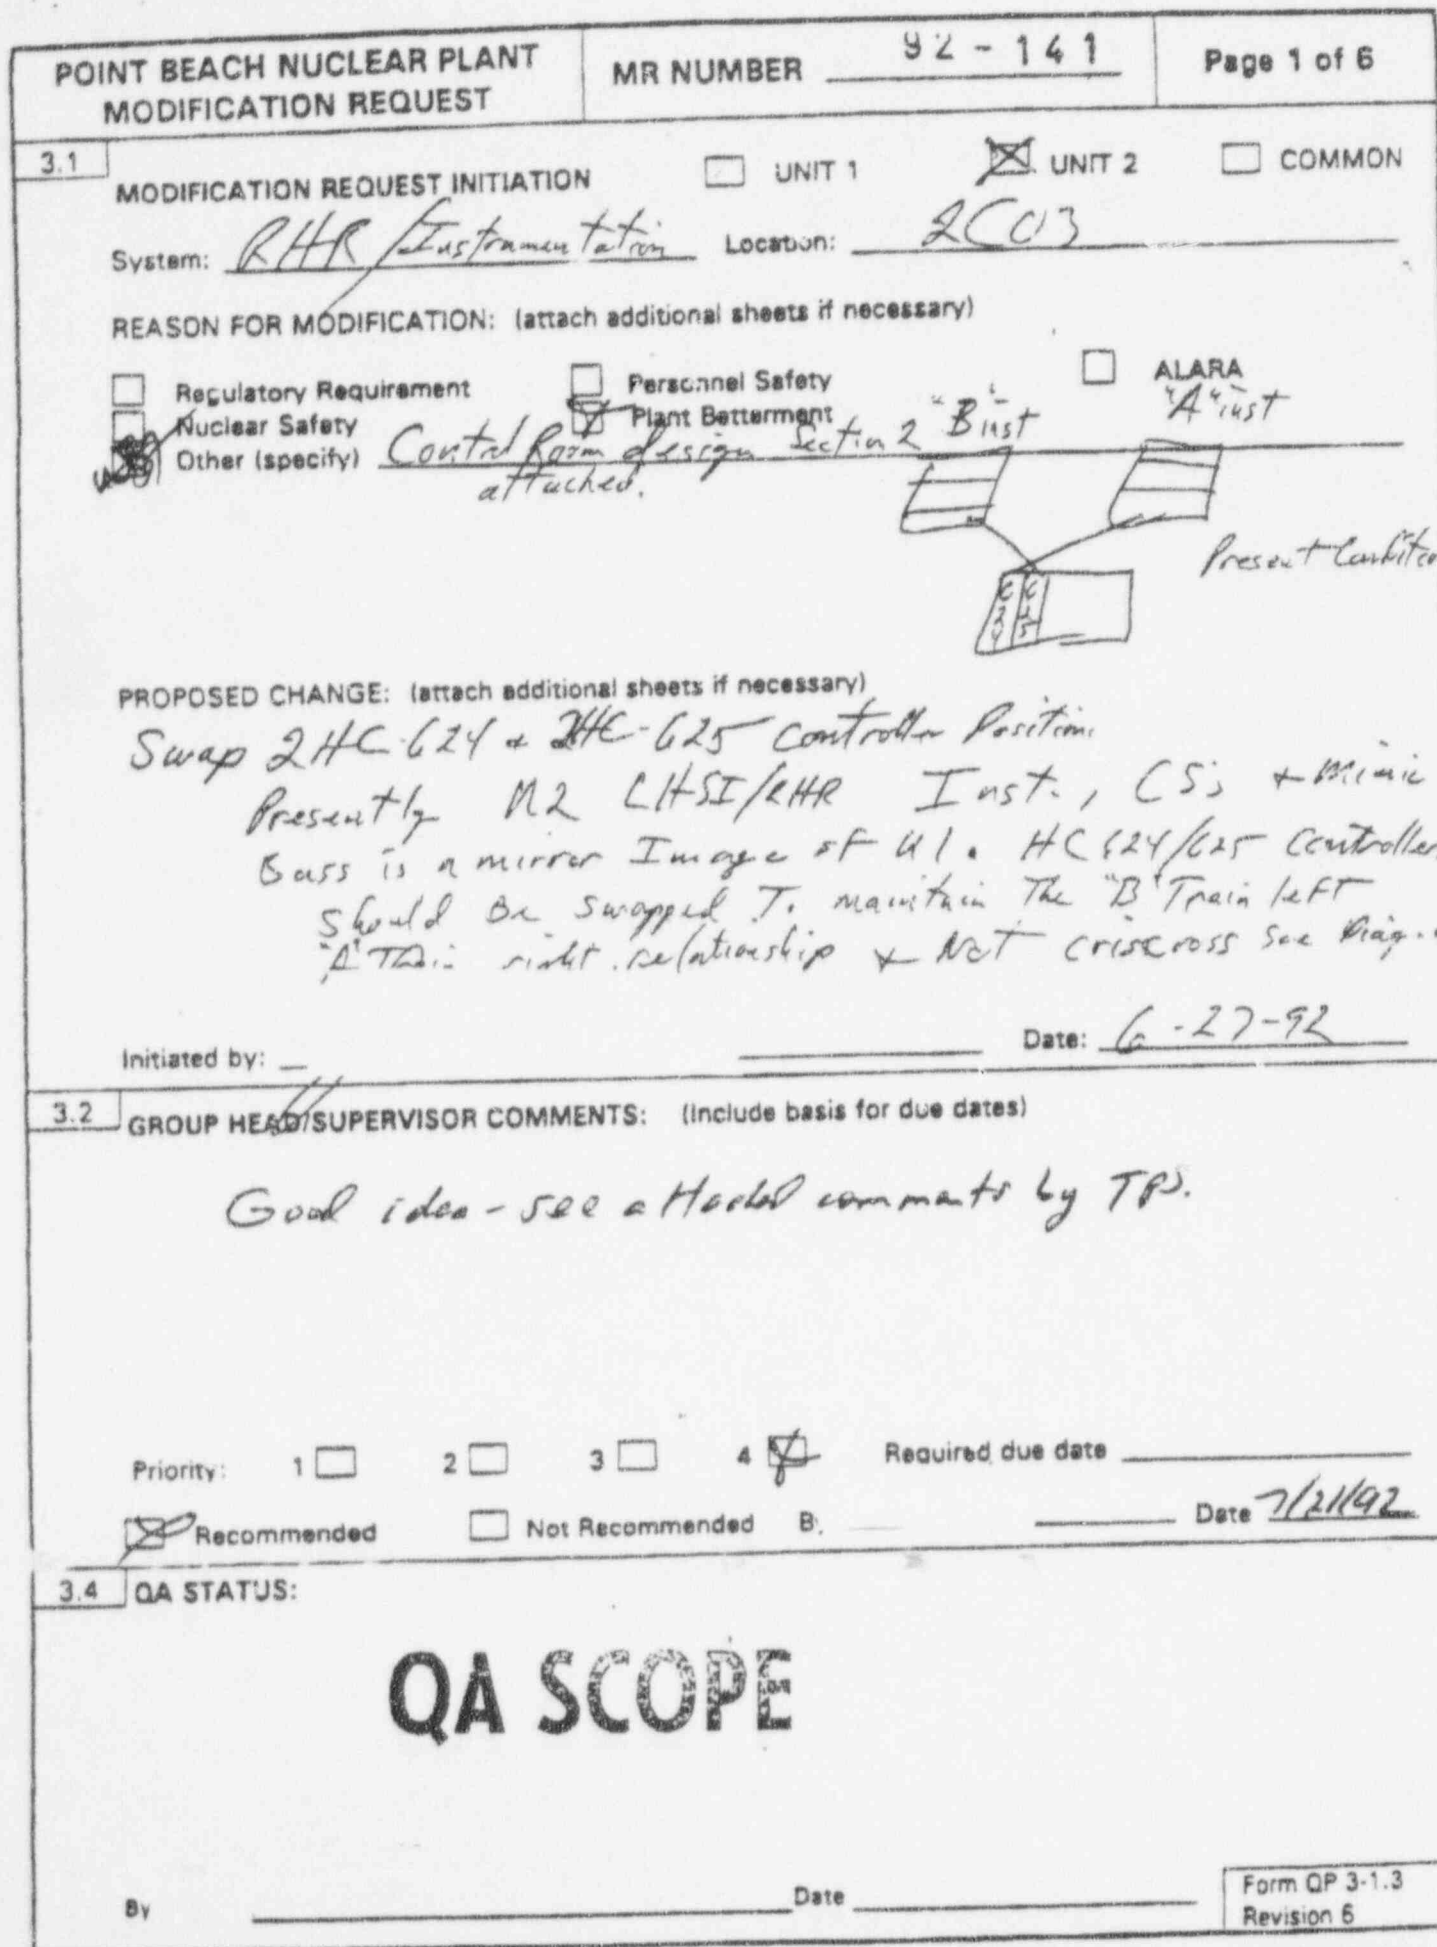 POINT BEACH NUCLEAR PLANT
MODIFICATION REQUEST
MR NUMBER 92-141
Page 1 of 6
3.1
MODIFICATION REQUEST INITIATION UNIT 1 UNIT 2 COMMON
System: RHR/Instrumentation Location: 2C03
REASON FOR MODIFICATION: (attach additional sheets if necessary)
Regulatory Requirement Personnel Safety ALARA
Nuclear Safety Plant Betterment "B" inst "A" inst
Other (specify) Control Room design Section 2
attached.
Present Condition
624 625
PROPOSED CHANGE: (attach additional sheets if necessary)
Swap 2HC-624 & 2HC-625 Controller Position.
Presently U2 LHSI/RHR Inst., CS's & Mimic
Buss is a mirror Image of U1. HC 624/625 Controller
should Be swapped To maintain The "B" Train left
"A" Train right relationship & Not criscross See Diag.
Initiated by: Date: 6-27-92
3.2 GROUP HEAD/SUPERVISOR COMMENTS: (Include basis for due dates)
Good idea - see attached comments by TPS.
Priority: 1 2 3 4 Required due date
Recommended Not Recommended B Date 7/21/92
3.4 QA STATUS:
QA SCOPE
By Date
Form QP 3-1.3
Revision 6